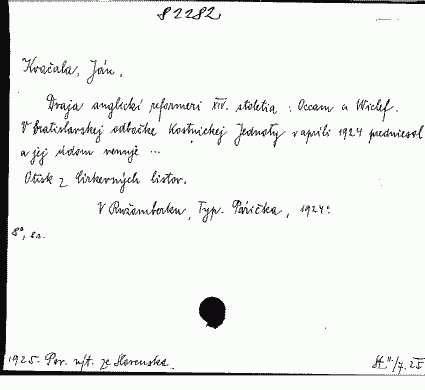 82282
Kvačala, Ján.
Dvaja anglickí reformeri XIV. stoletia : Occam a Wiclef.
V bratislavskej odbočke Kostnickej Jednoty v apríli 1924 predniesol
a jej údom venuje ...
Otisk z Cirkevných listov.
V Ružomberku, Typ. Párička, 1924.
8°,
1925. Pov. výt. ze Slovenska.
/7. 25